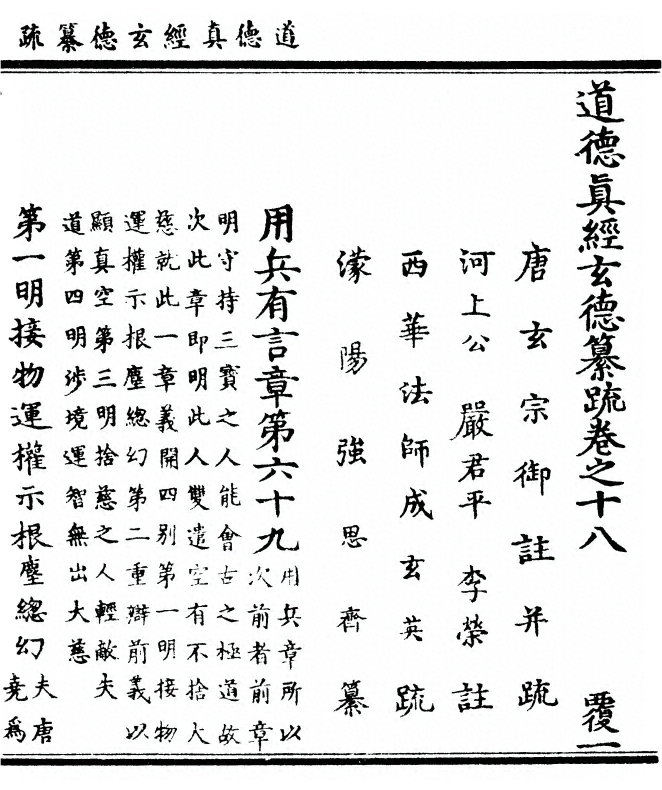 道德真經玄德纂疏
道德眞經玄德纂疏卷之十八 覆一
唐玄宗御註并疏
河上公 嚴君平 李榮註
西華法師成玄英疏
濛陽強思齊纂
用兵有言章第六十九 用兵章所以
次前者前章
明守持三寶之人能會古之極道故
次此章即明此人雙遣空有不捨大
慈就此一章義開四別第一明接物
運權示根塵總幻第二重辯前義以
顯真空第三明捨慈之人輕敵失
道第四明涉境運智無出大慈
第一明接物運權示根塵總幻 夫唐
堯爲